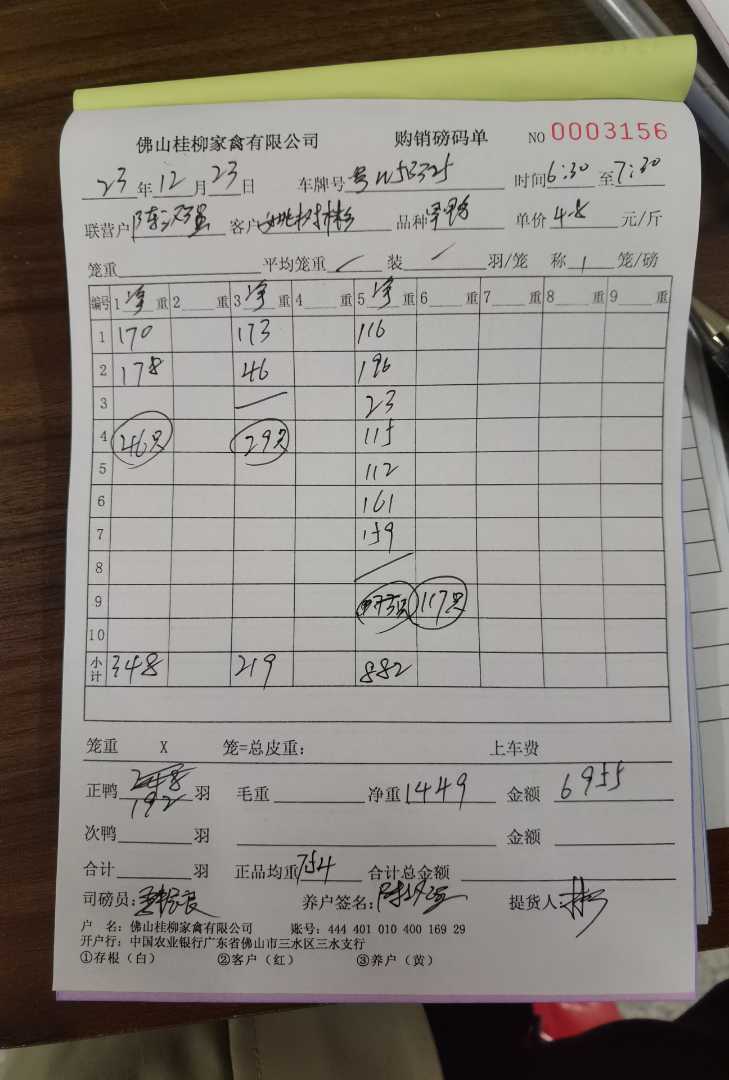 佛山桂柳家禽有限公司 购销磅码单 NO 0003156
23年12月23日 车牌号 时间6:30至7:30
联营户 客户 品种 单价4.8元/斤
笼重 平均笼重 装 羽/笼 称 1 笼/磅
编号 1 净 重 2 重 3 净 重 4 重 5 净 重 6 重 7 重 8 重 9 重
1 170 173 116
2 178 46 196
3 23
4 46只 29只 115
5 112
6 161
7 159
8
9 117只
10
小计 348 219 882
笼重 X 笼=总皮重: 上车费
正鸭 192 羽 毛重 净重 1449 金额 6955
次鸭 羽 金额
合计 羽 正品均重 7.54 合计总金额
司磅员: 养户签名: 提货人:
户 名:佛山桂柳家禽有限公司 账号:444 401 010 400 169 29
开户行:中国农业银行广东省佛山市三水区三水支行
①存根(白) ②客户(红) ③养户(黄)